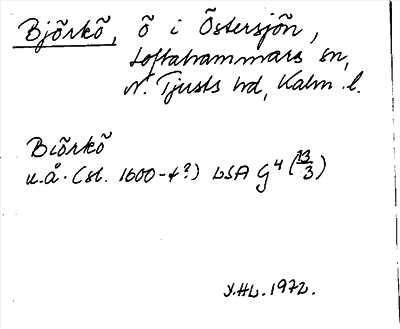 Björkö, ö i Östersjön,
Loftahammars sn,
N. Tjusts hd, Kalm. l.
Biörkö
u.å. (sl. 1600-t?) LSA G4 (13/3)
Y.HL. 1972.